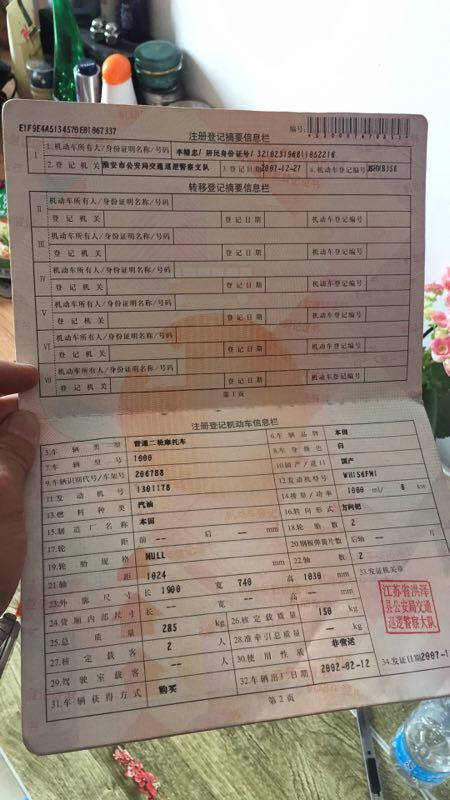 E1F9E4A5134578EB1867337
注册登记摘要信息栏
编号:
I 1.机动车所有人/身份证明名称/号码 李增忠/居民身份证号/
2.登记机关 淮安市公安局交通巡逻警察支队 3.登记日期 2007-12-27 4.机动车登记编号
转移登记摘要信息栏
II 机动车所有人/身份证明名称/号码
登记机关 登记日期 机动车登记编号
III 机动车所有人/身份证明名称/号码
登记机关 登记日期 机动车登记编号
IV 机动车所有人/身份证明名称/号码
登记机关 登记日期 机动车登记编号
V 机动车所有人/身份证明名称/号码
登记机关 登记日期 机动车登记编号
VI 机动车所有人/身份证明名称/号码
登记机关 登记日期 机动车登记编号
VII 机动车所有人/身份证明名称/号码
登记机关 登记日期 机动车登记编号
第1页
注册登记机动车信息栏
5.车辆类型 普通二轮摩托车 6.车辆品牌 本田
7.车辆型号 1000 8.车身颜色 白
9.车辆识别代号/车架号 206788 10.国产/进口 国产
11.发动机号 1301178 12.发动机型号 WH156FMI
13.燃料种类 汽油 14.排量/功率 1000 ml/ 8 kw
15.制造厂名称 本田 16.转向形式 方向把
17.轮距 前 -- 后 -- mm 18.轮胎数 2
19.轮胎规格 NULL 20.钢板弹簧片数 后轴 -- 片
21.轴距 1024 mm 22.轴数 2
23.外廓尺寸 长 1900 宽 740 高 1030 mm 33.发证机关章
24.货厢内部尺寸 长 -- 宽 -- 高 -- mm
25.总质量 285 kg 26.核定载质量 150 kg
27.核定载客 2 人 28.准牵引总质量 -- kg
29.驾驶室载客 -- 人 30.使用性质 非营运
31.车辆获得方式 购买 32.车辆出厂日期 2002-02-12 34.发证日期 2007-1
江苏省洪泽
县公安局交通
巡逻警察大队
第2页